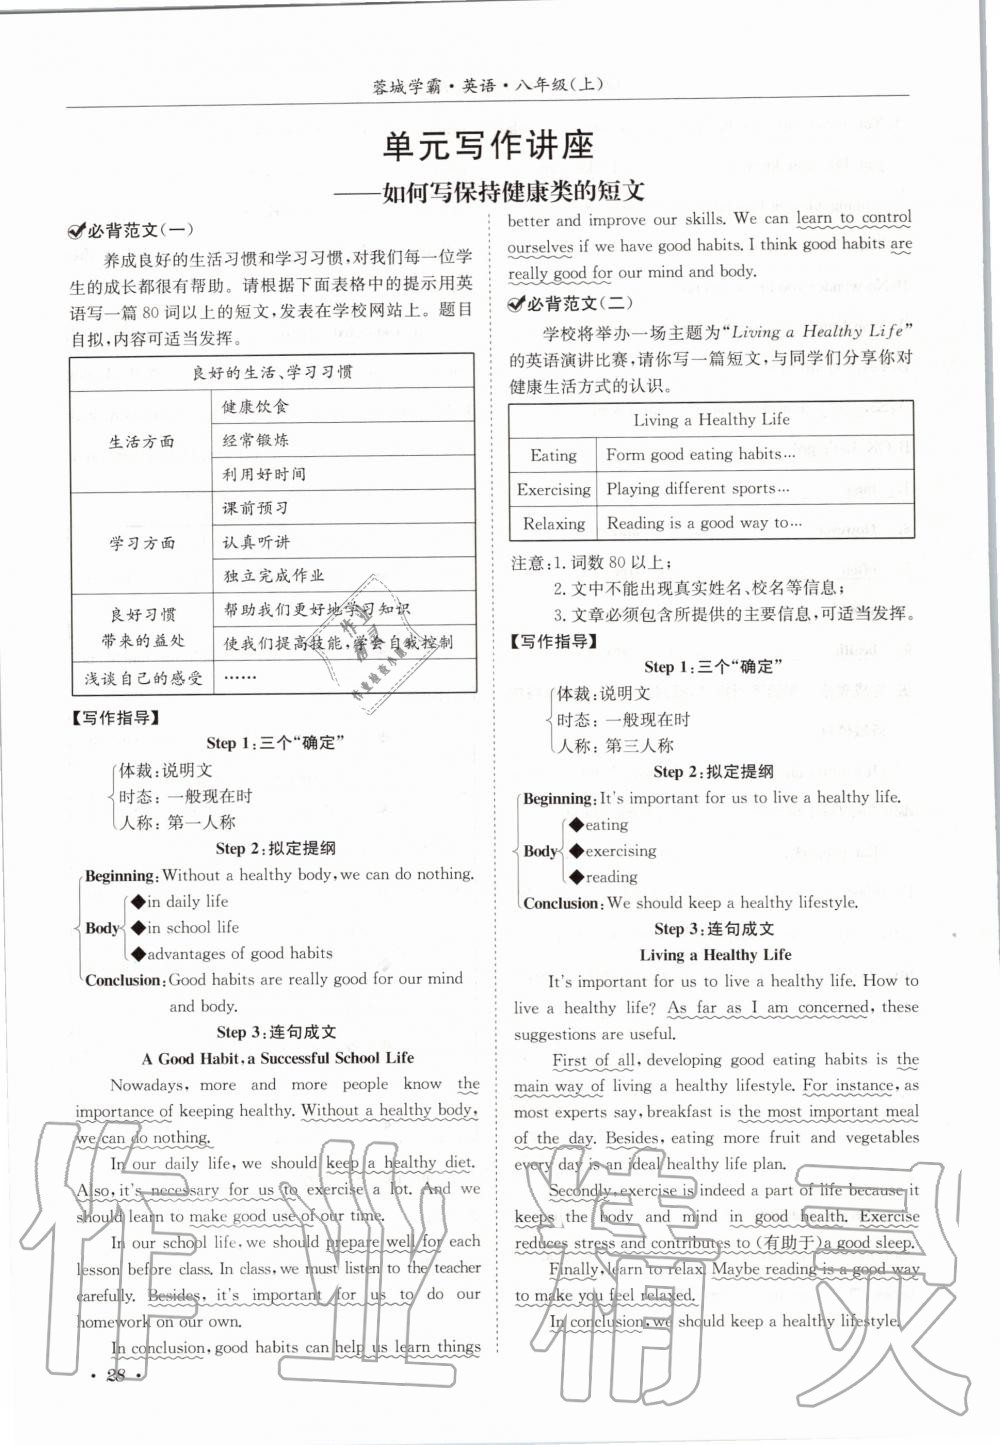 蓉城学霸·英语·八年级(上)
单元写作讲座
——如何写保持健康类的短文
必背范文(一)
养成良好的生活习惯和学习习惯,对我们每一位学
生的成长都很有帮助。请根据下面表格中的提示用英
语写一篇 80 词以上的短文,发表在学校网站上。题目
自拟,内容可适当发挥。
良好的生活、学习习惯
生活方面
健康饮食
经常锻炼
利用好时间
学习方面
课前预习
认真听讲
独立完成作业
良好习惯
带来的益处
帮助我们更好地学习知识
使我们提高技能,学会自我控制
浅谈自己的感受
……
【写作指导】
Step 1:三个“确定”
体裁:说明文
时态:一般现在时
人称:第一人称
Step 2:拟定提纲
Beginning: Without a healthy body, we can do nothing.
Body
◆in daily life
◆in school life
◆advantages of good habits
Conclusion: Good habits are really good for our mind
and body.
Step 3:连句成文
A Good Habit, a Successful School Life
Nowadays, more and more people know the
importance of keeping healthy. Without a healthy body,
we can do nothing.
In our daily life, we should keep a healthy diet.
Also, it's necessary for us to exercise a lot. And we
should learn to make good use of our time.
In our school life, we should prepare well for each
lesson before class. In class, we must listen to the teacher
carefully. Besides, it's important for us to do our
homework on our own.
In conclusion, good habits can help us learn things
· 28 ·
better and improve our skills. We can learn to control
ourselves if we have good habits. I think good habits are
really good for our mind and body.
必背范文(二)
学校将举办一场主题为“Living a Healthy Life”
的英语演讲比赛,请你写一篇短文,与同学们分享你对
健康生活方式的认识。
Living a Healthy Life
Eating Form good eating habits…
Exercising Playing different sports…
Relaxing Reading is a good way to…
注意:1. 词数 80 以上;
2. 文中不能出现真实姓名、校名等信息;
3. 文章必须包含所提供的主要信息,可适当发挥。
【写作指导】
Step 1:三个“确定”
体裁:说明文
时态:一般现在时
人称:第三人称
Step 2:拟定提纲
Beginning: It's important for us to live a healthy life.
Body
◆eating
◆exercising
◆reading
Conclusion: We should keep a healthy lifestyle.
Step 3:连句成文
Living a Healthy Life
It's important for us to live a healthy life. How to
live a healthy life? As far as I am concerned, these
suggestions are useful.
First of all, developing good eating habits is the
main way of living a healthy lifestyle. For instance, as
most experts say, breakfast is the most important meal
of the day. Besides, eating more fruit and vegetables
every day is an ideal healthy life plan.
Secondly, exercise is indeed a part of life because it
keeps the body and mind in good health. Exercise
reduces stress and contributes to (有助于) a good sleep.
Finally, learn to relax. Maybe reading is a good way
to make you feel relaxed.
In conclusion, we should keep a healthy lifestyle.
作业精灵